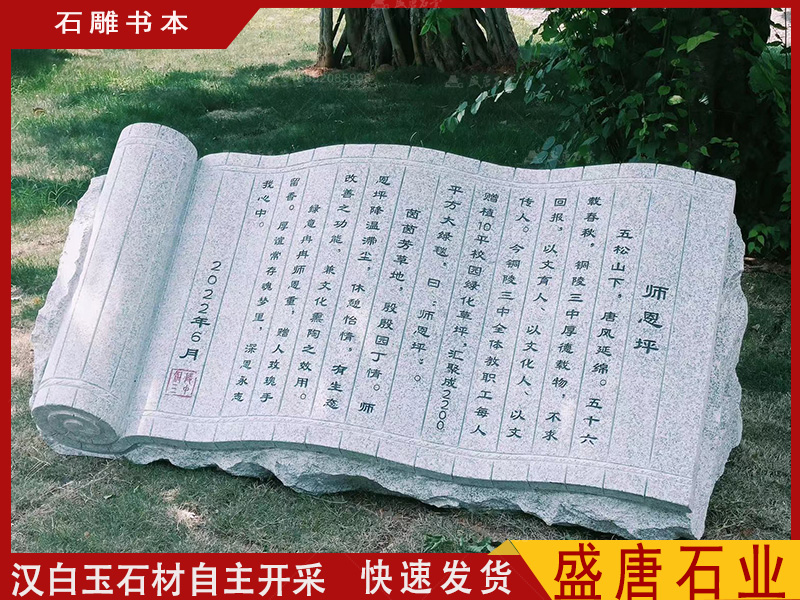 石雕书本
师恩坪
五松山下，唐风延绵。五十六
载春秋，铜陵三中厚德载物，不求
回报，以文育人、以文化人、以文
传人。今铜陵三中全体教职工每人
赠植10平校园绿化草坪，汇聚成2200
平方大绿毯，曰：师恩坪。。
茵茵芳草地，殷殷园丁情。师
恩坪降温滞尘，休憩怡情，有生态
改善之功能，兼文化熏陶之效用。
绿意冉冉师恩重，赠人玫瑰手
留香。厚谊常存魂梦里，深恩永志
我心中。
2022年6月
汉白玉石材自主开采 快速发货
盛唐石业